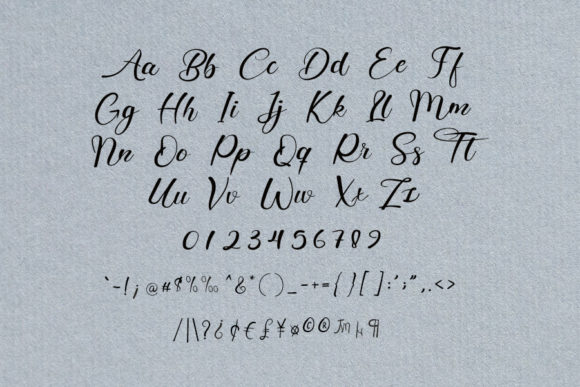 Aa Bb Cc Dd Ee Ff
Gg Hh Ii Jj Kk Ll Mm
Nn Oo Pp Qq Rr Ss Tt
Uu Vv Ww Xx Zz
0 1 2 3 4 5 6 7 8 9
`~!¡@#$%‰^&*()_-+={}[]:';",.<>
/|\?¿¢€£¥¤©®™µ¶